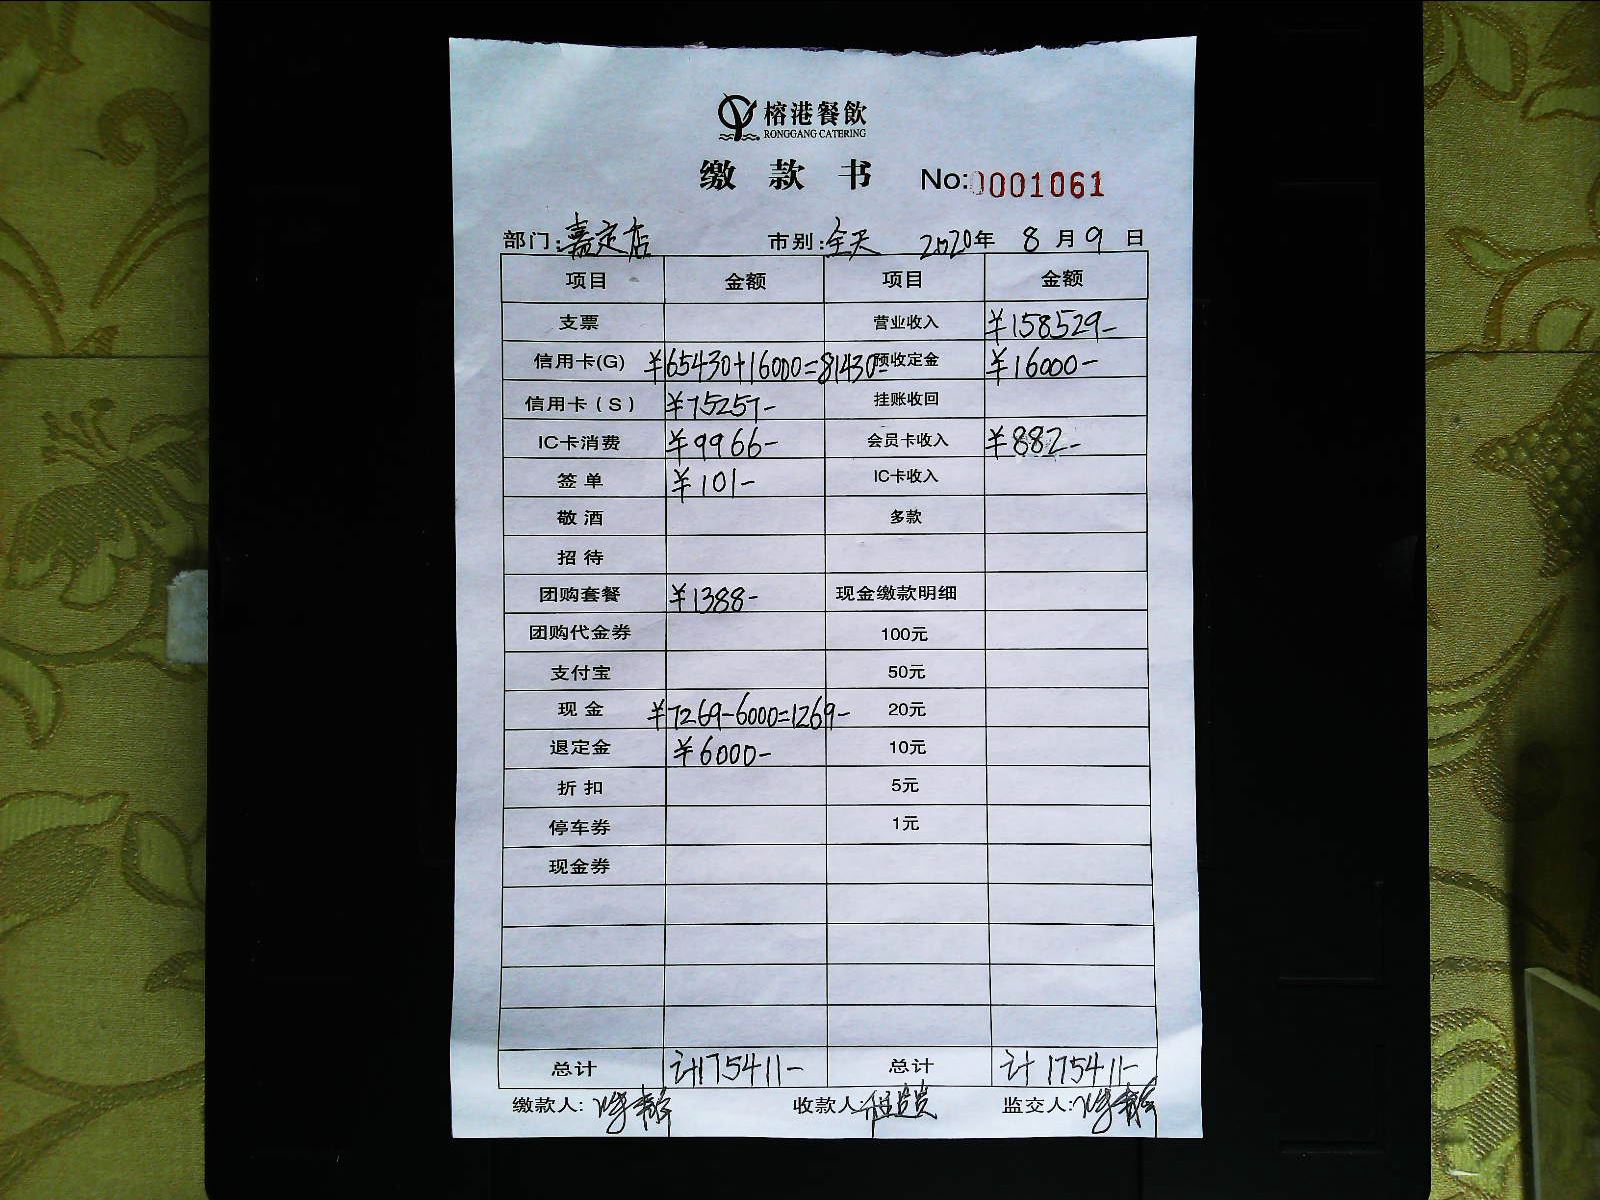 榕港餐飲
RONGGANG CATERING
缴款书 No:0001061
部门:嘉定店 市别:全天 2020年 8月9日
项目 金额 项目 金额
支票 营业收入 ¥158529-
信用卡(G) ¥65430+16000=81430- 预收定金 ¥16000-
信用卡(S) ¥75257- 挂账收回
IC卡消费 ¥9966- 会员卡收入 ¥882-
签单 ¥101- IC卡收入
敬酒 多款
招待
团购套餐 ¥1388- 现金缴款明细
团购代金券 100元
支付宝 50元
现金 ¥7269-6000=1269- 20元
退定金 ¥6000- 10元
折扣 5元
停车券 1元
现金券
总计 计175411- 总计 计175411-
缴款人: 收款人: 监交人: